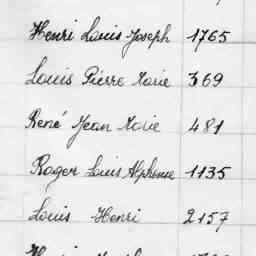 Henri Louis Joseph 1765
Louis Pierre Marie 369
René Jean Marie 481
Roger Louis Alphonse 1135
Louis Henri 2157